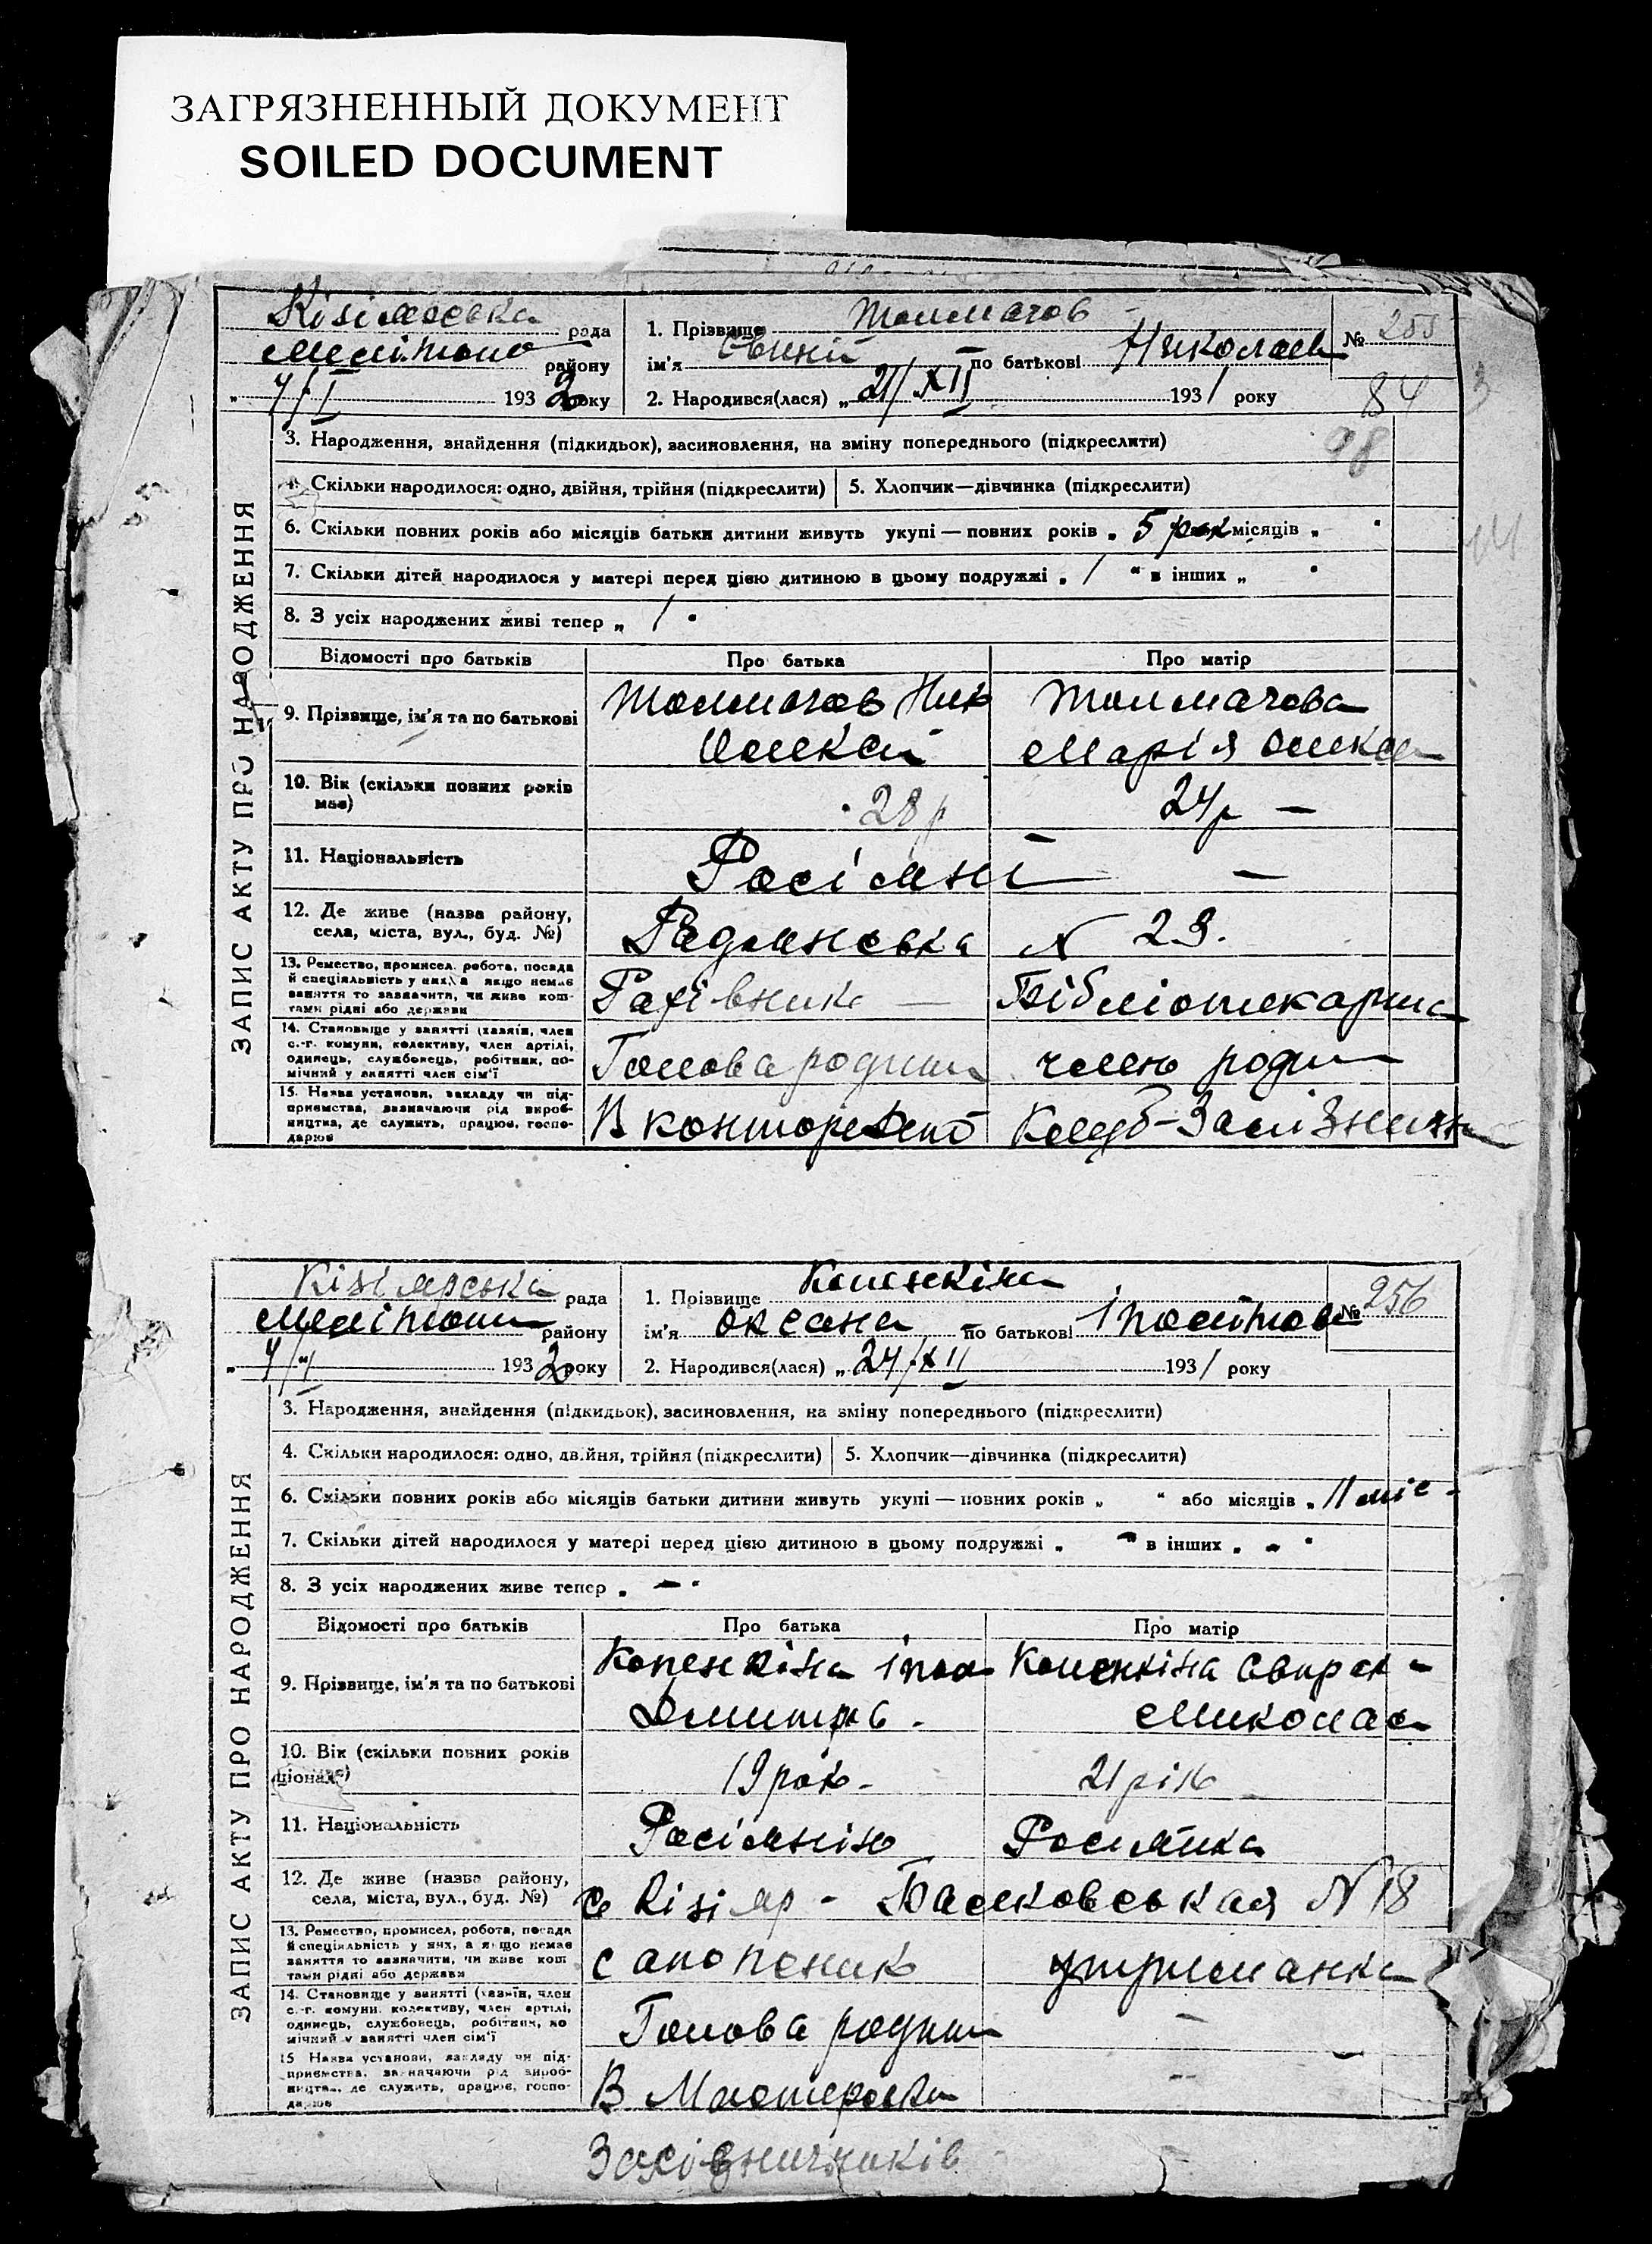 ЗАГРЯЗНЕННЫЙ ДОКУМЕНТ
SOILED DOCUMENT
Кізіярська рада
Меліто районy
7/I 1932 року
1. Прізвище Толмачов
ім'я по батькові Николаев
2. Народився(лася) „ 21/XII 1931 року
№ 255
84
98
ЗАПИС АКТУ ПРО НАРОДЖЕННЯ
3. Народження, знайдення (підкидьок), засиновлення, на зміну попереднього (підкреслити)
4. Скільки народилося: одно, двійня, трійня (підкреслити) 5. Хлопчик—дівчинка (підкреслити)
6. Скільки повних років або місяців батьки дитини живуть укупі — повних років „ 5 рок місяців „
7. Скільки дітей народилося у матері перед цією дитиною в цьому подружжі „ 1 “ в інших „
8. З усіх народжених живі тепер „ 1 "
Відомості про батьків Про батька Про матір
9. Прізвище, ім'я та по батькові Толмачов Ник Толмачова
Олексі Марія Олекс
10. Вік (скільки повних років має) 28 р 24 р —
11. Національність Росіяни —
12. Де живе (назва району, села, міста, вул., буд. №) Радянська N 29.
13. Ремество, промисел, робота, посада й спеціяльність у них, а якщо немає заняття то зазначити, чи живе коштами рідні або держави Рахівник — Бібліотекарша
14. Становище у занятті (хазяїн, член с.-г. комуни, колективу, член артілі, одинець, службовець, робітник, помічний у занятті член сім'ї Голова родини член роди
15. Назва установи, закладу чи підприємства, зазначаючи рід виробництва, де служить, працює, господарює В конторе Депо Клуб Залізнични
Кізіярська рада
Мелітопи району
7/I 1932 року
1. Прізвище Копенкіна
ім'я Оксана по батькові Іполітов
2. Народився(лася) „ 24/XII 1931 року
№ 256
ЗАПИС АКТУ ПРО НАРОДЖЕННЯ
3. Народження, знайдення (підкидьок), засиновлення, на зміну попереднього (підкреслити)
4. Скільки народилося: одно, двійня, трійня (підкреслити) 5. Хлопчик—дівчинка (підкреслити)
6. Скільки повних років або місяців батьки дитини живуть укупі — повних років „ “ або місяців „ 11 міс -
7. Скільки дітей народилося у матері перед цією дитиною в цьому подружжі „ - “ в інших „ - "
8. З усіх народжених живе тепер „ — "
Відомості про батьків Про батька Про матір
9. Прізвище, ім'я та по батькові Копенкіна Іпол Копенкіна
Дмитрв. Микола
10. Вік (скільки повних років 19 рок - 21 рік
11. Національність Росіянін Росиянка
12. Де живе (назва району, села, міста, вул., буд. №) с Кізіяр - Балковськая N 18
13. Ремество, промисел, робота, посада й спеціяльність у них, а якщо немає заняття то зазначити, чи живе коштами рідні або держави сапожник утриманка
14. Становище у занятті (хазяїн, член с.-г. комуни, колективу, член артілі, одинець, службовець, робітник, помічний у занятті член сім'ї Голова родини -
15 Назва установи, закладу чи підприємства, зазначаючи рід виробництва, де служить, працює, господарює В Мастерски --
Залізничників